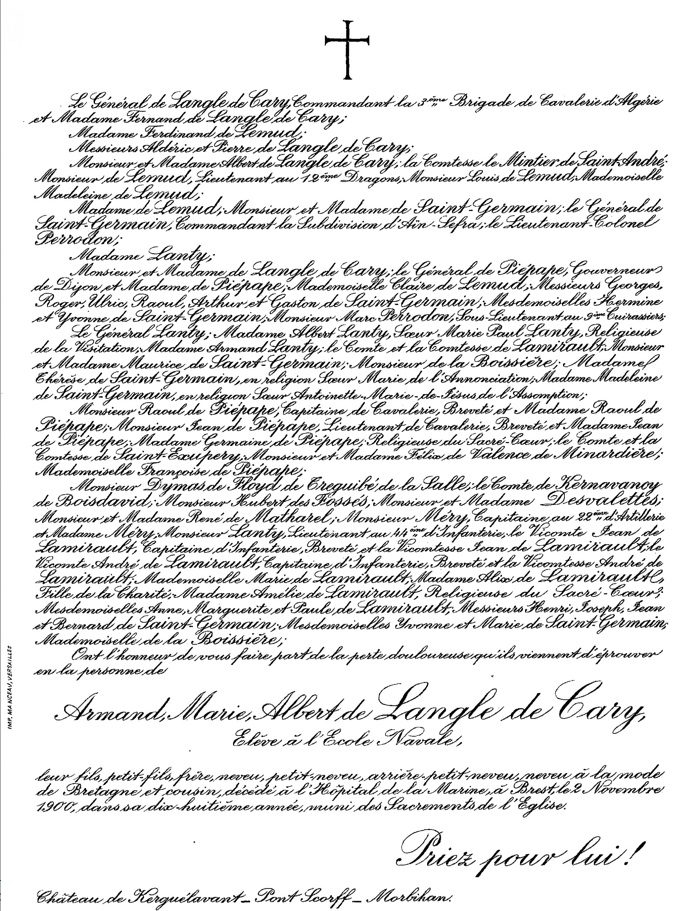 Le Général de Langle de Cary, Commandant la 3ème Brigade de Cavalerie d'Algérie
et Madame Fernand de Langle de Cary;
Madame Ferdinand de Lemud;
Messieurs Aldéric et Pierre de Langle de Cary;
Monsieur et Madame Albert de Langle de Cary; la Comtesse le Mintier de Saint-André;
Monsieur de Lemud, Lieutenant au 12ème Dragons, Monsieur Louis de Lemud, Mademoiselle
Madeleine de Lemud;
Madame de Lemud; Monsieur et Madame de Saint-Germain; le Général de
Saint-Germain, Commandant la Subdivision d'Aïn-Sefra; le Lieutenant-Colonel
Perrodon;
Madame Lanty;
Monsieur et Madame de Langle de Cary; le Général de Piépape, Gouverneur
de Dijon et Madame de Piépape; Mademoiselle Claire de Lemud; Messieurs Georges,
Roger, Ulric, Raoul, Arthur et Gaston de Saint-Germain; Mesdemoiselles Hermine
et Yvonne de Saint-Germain; Monsieur Marc Perrodon, Sous-Lieutenant au 9ème Cuirassiers;
Le Général Lanty; Madame Albert Lanty, Sœur Marie Paul Lanty, Religieuse
de la Visitation; Madame Armand Lanty; le Comte et la Comtesse de Lamirault; Monsieur
et Madame Maurice de Saint-Germain; Monsieur de la Boissière; Madame
Thérèse de Saint-Germain, en religion Sœur Marie de l'Annonciation; Madame Madeleine
de Saint-Germain, en religion Sœur Antoinette-Marie-de-Jésus de l'Assomption;
Monsieur Raoul de Piépape, Capitaine de Cavalerie, Breveté et Madame Raoul de
Piépape; Monsieur Jean de Piépape, Lieutenant de Cavalerie, Breveté et Madame Jean
de Piépape; Madame Germaine de Piépape, Religieuse du Sacré-Cœur; le Comte et la
Comtesse de Saint-Exupery; Monsieur et Madame Félix de Valence de Minardière;
Mademoiselle Françoise de Piépape;
Monsieur Dymas de Floyd de Treguibé de la Salle; le Comte de Kernavanoy
de Boisdavid; Monsieur Hubert des Fossés; Monsieur et Madame Desvalettes;
Monsieur et Madame René de Matharel; Monsieur Méry, Capitaine au 22ème d'Artillerie
et Madame Méry; Monsieur Lanty, Lieutenant au 44ème d'Infanterie, le Vicomte Jean de
Lamirault, Capitaine d'Infanterie, Breveté et la Vicomtesse Jean de Lamirault; le
Vicomte André de Lamirault, Capitaine d'Infanterie, Breveté et la Vicomtesse André de
Lamirault; Mademoiselle Marie de Lamirault; Madame Alix de Lamirault,
Fille de la Charité; Madame Amélie de Lamirault, Religieuse du Sacré-Cœur;
Mesdemoiselles Anne, Marguerite et Paule de Lamirault; Messieurs Henri, Joseph, Jean
et Bernard de Saint-Germain; Mesdemoiselles Yvonne et Marie de Saint-Germain;
Mademoiselle de la Boissière;
Ont l'honneur de vous faire part de la perte douloureuse qu'ils viennent d'éprouver
en la personne de
Armand, Marie, Albert de Langle de Cary,
Elève à l'Ecole Navale,
leur fils, petit-fils, frère, neveu, petit-neveu, arrière-petit-neveu, neveu à la mode
de Bretagne et cousin, décédé à l'Hôpital de la Marine, à Brest, le 2 Novembre
1900, dans sa dix-huitième année, muni des Sacrements de l'Eglise.
Priez pour lui !
Château de Kerguélavant _ Pont Scorff _ Morbihan.
IMP. MANCEAU, VERSAILLES